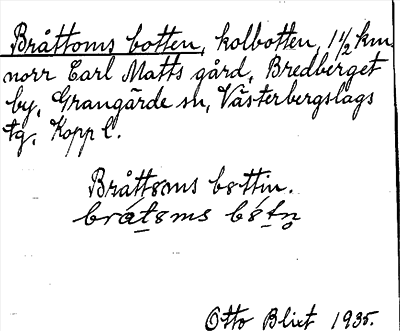 Bråttoms botten, kolbotten, 1 1/2 km
norr Carl Matts gård, Bredberget
by, Grangärde sn, Västerbergslags
tg. Kopp l.
Bråttøms bøttin.
bråtsms bøtn̥
Otto Blixt 1935.